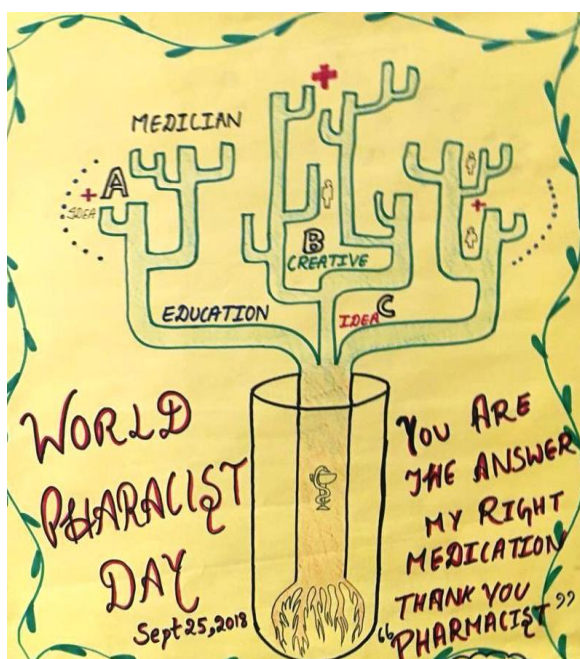 MEDICIAN
+ A
IDEA
+
B
CREATIVE
+
EDUCATION
IDEA C
WORLD
PHARACIST
DAY
Sept 25, 2018
YOU ARE
THE ANSWER
MY RIGHT
MEDICATION
THANK YOU
“PHARMACIST”